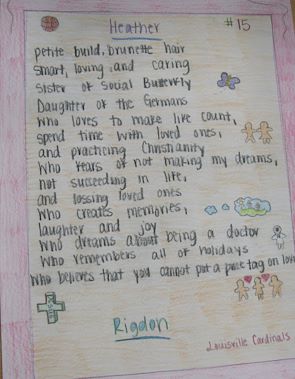 Heather
#15
petite build, brunette hair
smart, loving and caring
sister of Social Butterfly
Daughter of the Germans
Who loves to make life count,
spend time with loved ones,
and practicing Christianity
Who fears of not making my dreams,
not succeeding in life,
and lossing loved ones
Who creates memories,
laughter and joy
Who dreams about being a doctor
Who remembers all of holidays
Who believes that you cannot put a price tag on love
Rigdon
Louisville Cardinals